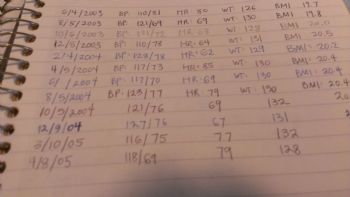 6/4/2003 BP: 110/81 HR: 80 WT: 126 BMI 19.7
8/5/2003 BP: 121/69 HR: 69 WT: 130 BMI 19.8
10/6/2003 BP: HR: 63 WT: 129 BMI 20.0
12/5/2003 BP: 110/78 HR: 64 WT: 131 BMI 20.5
2/4/2004 BP: 123/78 HR: 62 WT: 129 BMI: 20.2
4/5/2004 BP: 117/73 HR: 85 WT: 130 BMI: 20.4
BP: 117/70 HR: 69 WT: 130 BMI: 20.4
8/5/2004 BP: 123/77 HR: 79 WT: 130 BMI: 20.4
10/5/2004 121/76 69 132
12/9/04 127/76 67 131
2/10/05 116/75 77 132
4/8/05 118/69 79 128